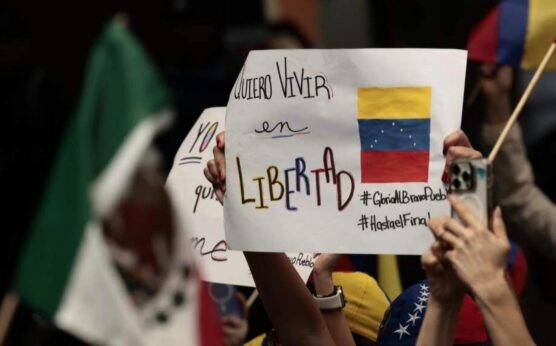 QUIERO VIVIR
en
LIBERTAD
#GloriaAlBravoPueblo
#HastaelFinal
YO
qu
me
Pueblo